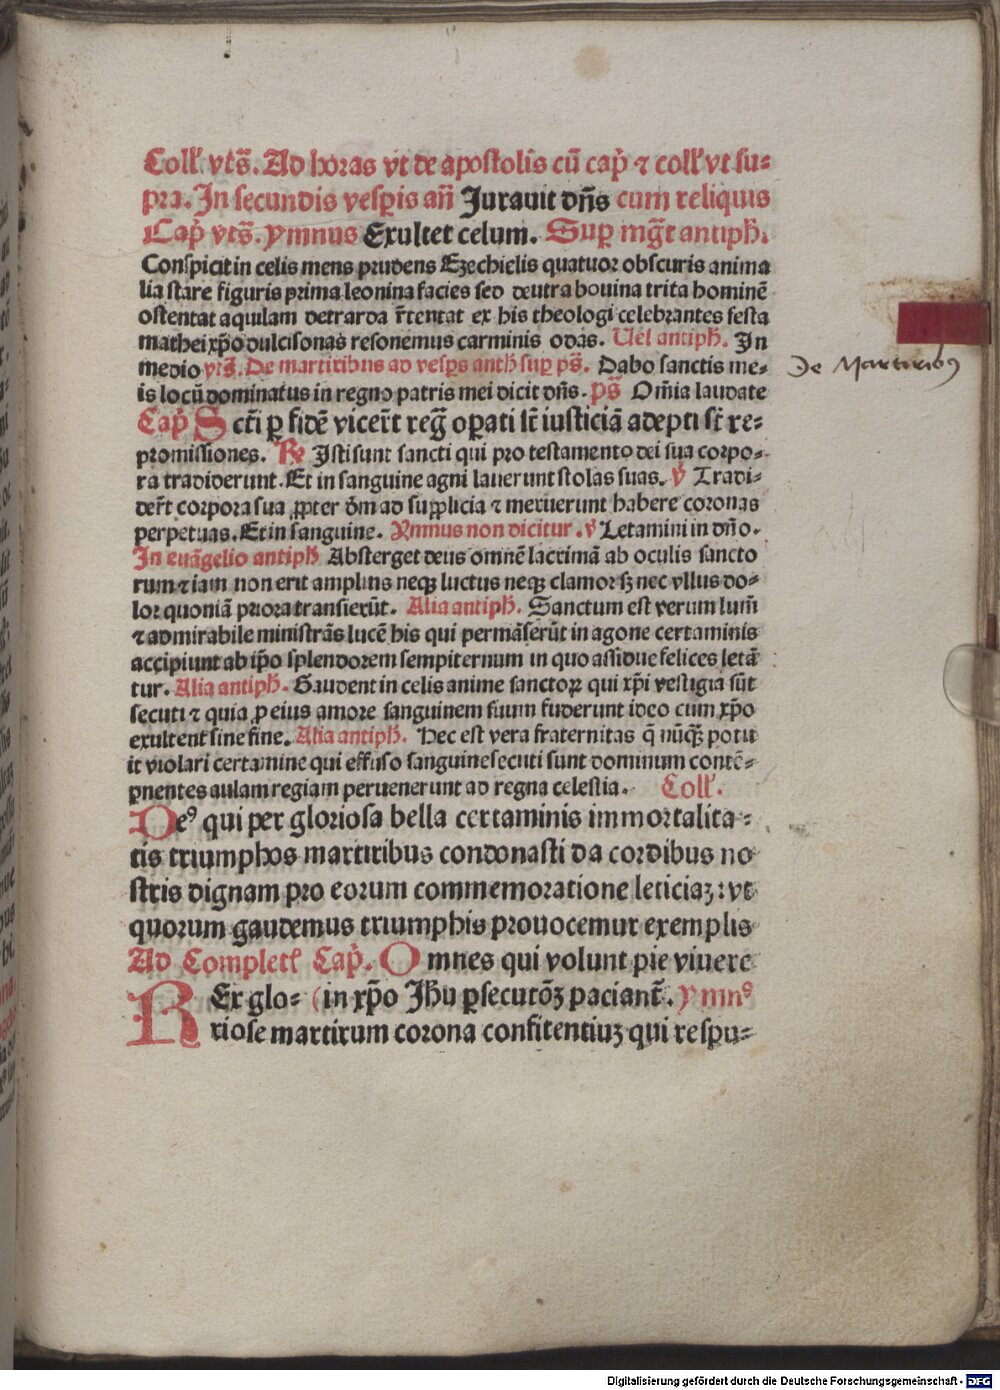 Coll' vts̄. Ad horas vt de apostolis cū cap̄ ⁊ coll' vt su⸗
pra. In secundis vesꝑis an̄ Jurauit dn̄s cum reliquis
Cap̄ vts̄. ymnus Exultet celum. Suꝑ mḡt antiph̄.
Conspicit in celis mens prudens Ezechielis quatuor obscuris anima
lia stare figuris prima leonina facies sed deutra bouina trita hominē
ostentat aquilam detrarda r̄tentat ex his theologi celebrantes festa
mathei xp̄o dulcisonas resonemus carminis odas. Uel antiph̄. In
medio vts̄. De martiribus ad vesꝑs anth̄ suꝑ ps̄. Dabo sanctis me⸗
De Martiribꝰ
is locū dominatus in regno patris mei dicit dn̄s. ps̄ Om̄ia laudate
Cap̄ Sct̄i ꝑ fidē vicer̄t reḡ oꝑati st̄ iusticiā adepti st̄ re⸗
promissiones. ℟ Isti sunt sancti qui pro testamento dei sua corpo⸗
ra tradiderunt. Et in sanguine agni lauerunt stolas suas. ℣ Tradi⸗
der̄t corpora sua ꝓpter dm̄ ad supplicia ⁊ meruerunt habere coronas
perpetuas. Et in sanguine. Ymnus non dicitur. ℣ Letamini in dn̄o.
In euāgelio antiph̄ Absterget deus omnē lacrimā ab oculis sancto
rum ⁊ iam non erit amplius neqꝫ luctus neqꝫ clamor sꝫ nec vllus do⸗
lor quoniā priora transierūt. Alia antiph̄. Sanctum est verum lum̄
⁊ admirabile ministrās lucē his qui permāserūt in agone certaminis
accipiunt ab ip̄o splendorem sempiternum in quo assidue felices letā
tur. Alia antiph̄. Gaudent in celis anime sanctoꝝ qui xp̄i vestigia sūt
secuti ⁊ quia ꝓ eius amore sanguinem suum fuderunt ideo cum xp̄o
exultent sine fine. Alia antiph̄. Hec est vera fraternitas q̄ nūqꝫ potu
it violari certamine qui effuso sanguine secuti sunt dominum contē⸗
pnentes aulam regiam peruenerunt ad regna celestia. Coll'.
Deꝰ qui per gloriosa bella certaminis immortalita⸗
tis triumphos martiribus condonasti da cordibus no
stris dignam pro eorum commemoratione leticiaꝫ: vt
quorum gaudemus triumphis prouocemur exemplis
Ad Complet' Cap̄. Omnes qui volunt pie viuere
REx glo⸗ (in xp̄o Jh̄u ꝑsecutōꝫ paciant̄. ymnꝰ
riose martirum corona confitentiuꝫ qui respu⸗
Digitalisierung gefördert durch die Deutsche Forschungsgemeinschaft - DFG